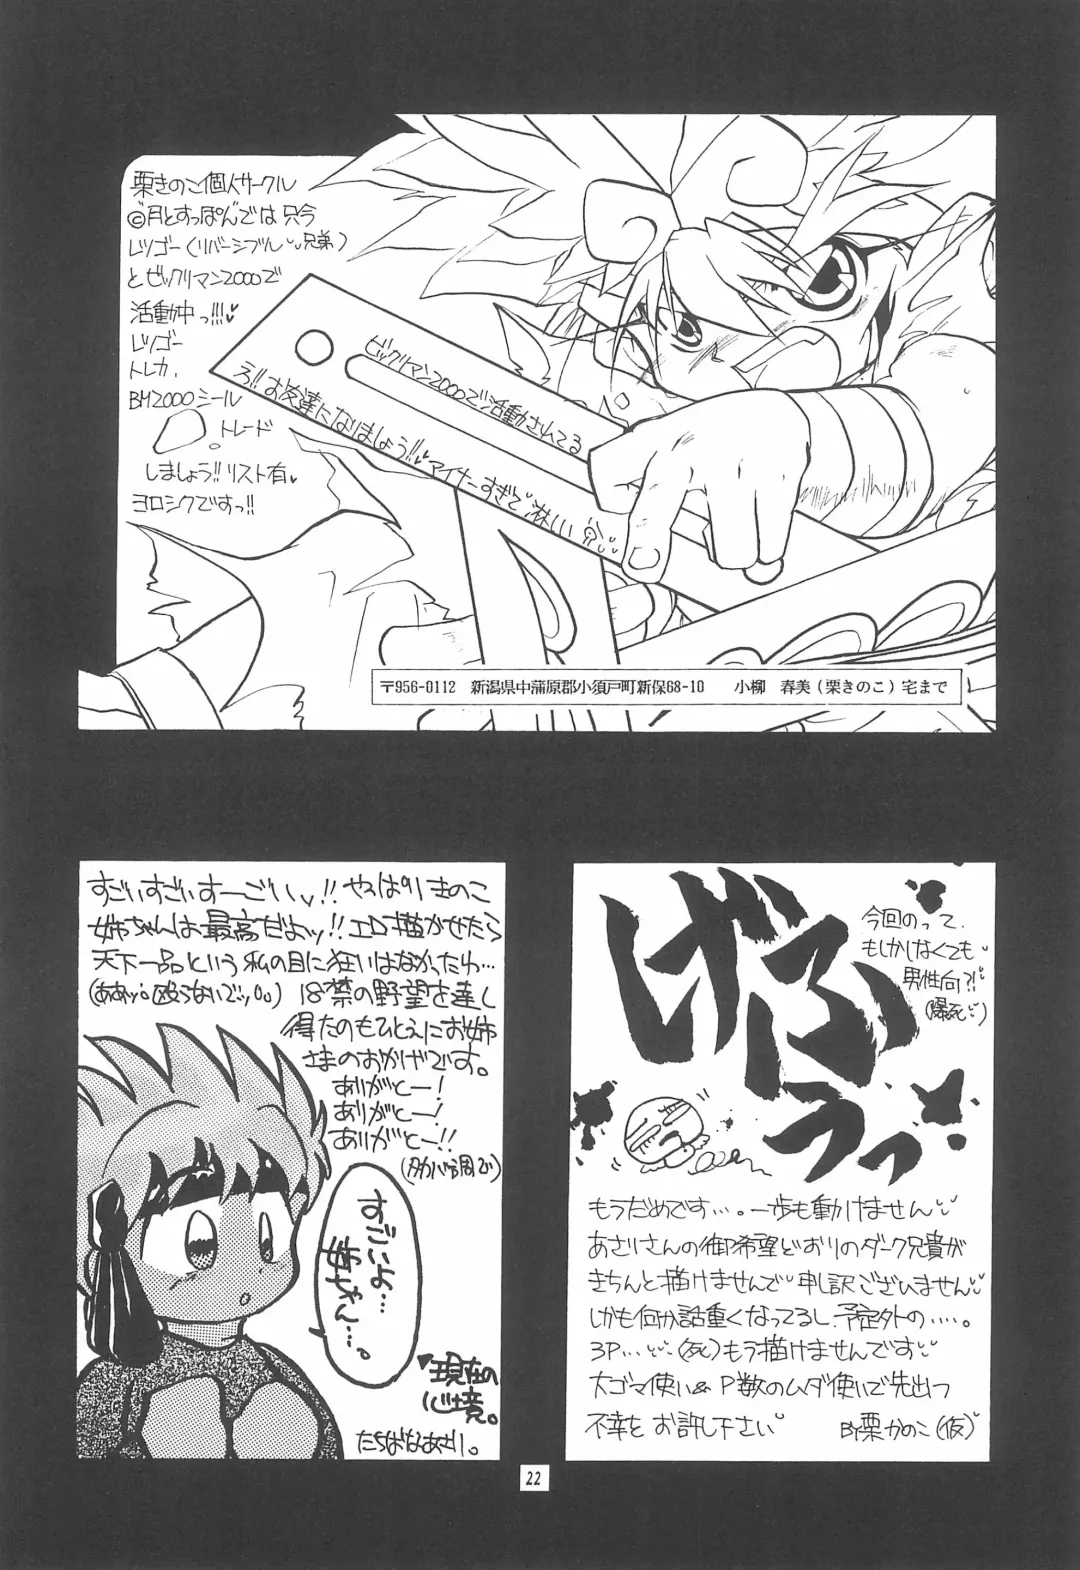 栗きのこ個人サークル
"月とすっぽん"では只今
レツゴー(リバーシブル兄弟)
とビックリマン2000で
活動中っ!!!♥
レツゴー
トレカ、
BM2000シール
トレード
しましょう!!リスト有♥
ヨロシクですっ!!
ビックリマン2000で活動されてる
ろ!!お友達になりましょう!!♥マイナーすぎて淋しい
〒956-0112 新潟県中蒲原郡小須戸町新保68-10 小柳 春美(栗きのこ)宅まで
すごいすごいすーごいっ!!やっぱりきのこ
姉ちゃんは最高だよッ!!エロ描かせたら
天下一品という私の目に狂いはなかったわ…
(ああッ。殴らないでッ。。) 18禁の野望を達し
得たのもひとえにお姉
さまのおかげです。
ありがとー!
ありがとー!
ありがとー!!
すごいよ…
姉ちゃん…。
▼現在の
心境。
たちばなあさり。
げふうっ
今回のって、
もしかしなくても
男性向?!
(爆死)
もうだめです…。一歩も動けません
あさりさんの御希望どおりのダーク兄貴が
きちんと描けませんで申し訳ございません
しかも何か話重くなってるし、予定外の…。
3P…(死)もう描けませんです
大ゴマ使い&P数のムダ使いで先出つ
不幸をお許し下さい
BY栗かのこ(仮)
22